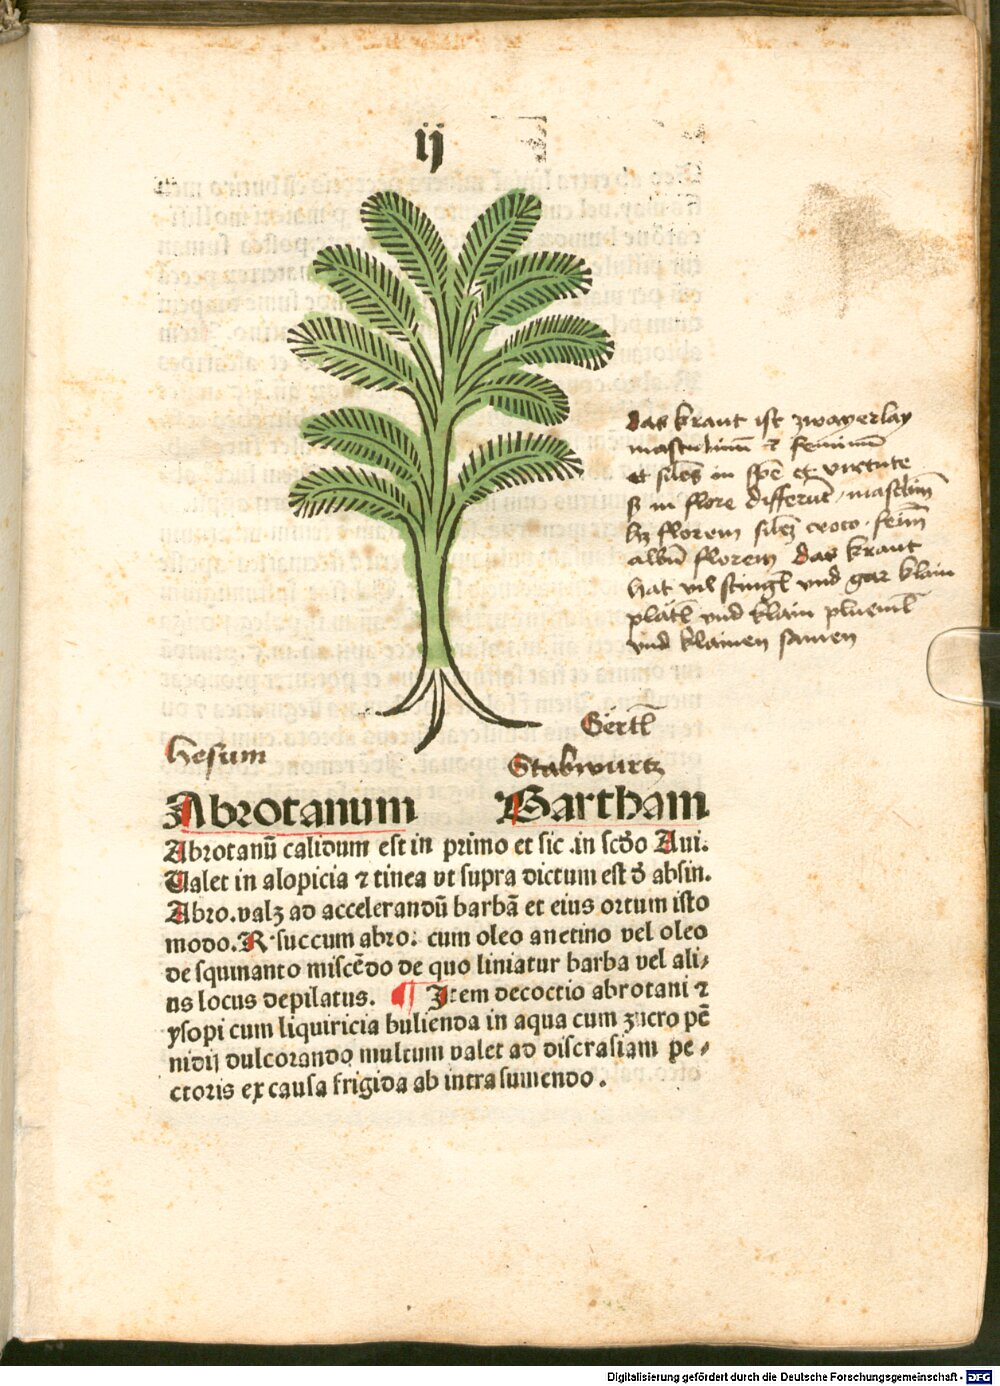 ij
das kraut ist zwayerlay
masculinū ⁊ femininū
et siles in spē et virtute
ꝫ in flore differūt / masclinū
hꝫ florem silē croco · femī
albū florem das kraut
hat vil stingl vnd gar klain
plātl vnd klain pluemtl
vnd klainen samen
Gertl
hesum Stabwurtz
Abrotanum Gartham
Abrotanū calidum est in primo et sic .in scďo Aui.
Ualet in alopicia ⁊ tinea vt supra dictum est ď absin.
Abro.valꝫ ad accelerandū barbā et eius ortum isto
modo.R succum abro: cum oleo anetino vel oleo
de squinanto miscēdo de quo liniatur barba vel ali⸗
us locus depilatus. ¶ Item decoctio abrotani ⁊
ysopi cum liquiricia bulienda in aqua cum zucro pē
nidij dulcorando multum valet ad discrasiam pe⸗
ctoris ex causa frigida ab intra sumendo.
Digitalisierung gefördert durch die Deutsche Forschungsgemeinschaft - DFG